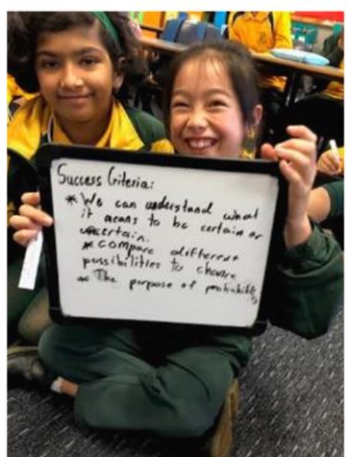 Success Criteria:
* We can understand what
it means to be certain or
uncertain.
* compare different
possibilities to chance
* The purpose of probability